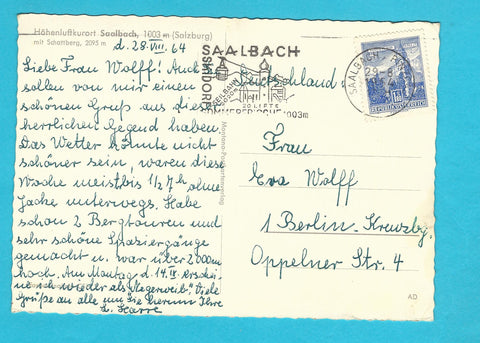 Höhenluftkurort Saalbach, 1003 m (Salzburg)
mit Schattberg, 2095 m
d. 28. VIII. 64
Liebe Frau Wolff! Auch Sie
sollen von mir einen
schönen Gruß aus dieser
herrlichen Gegend haben.
Das Wetter könnte nicht
schöner sein, waren diese
Woche meist bis 1/2 7h ohne
Jacke unterwegs. Habe
schon 2 Bergtouren und
sehr schöne Spaziergänge
gemacht u. war über 2000m
hoch. Am Montag d. 14. IX. erschei-
ne ich wieder als "Negerweib". Viele
Grüße an alle um Sie herum Ihre
L. Harre
SAALBACH
SKIDORF
SEILBAHN
20 LIFTE
SOMMERFRISCHE 1003m
Deutschland
SAALBACH
29.-8.
Frau
Eva Wolff
1 Berlin-Kreuzbg.
Oppelner Str. 4
AD